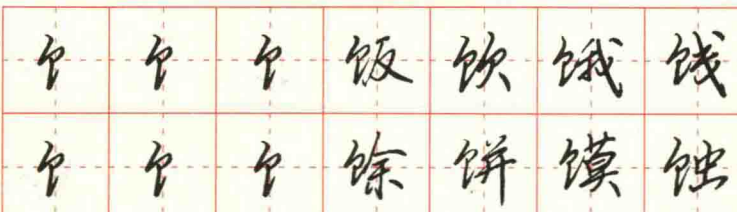 饣饣饣饭饮饿饯
饣饣饣馀饼馍蚀